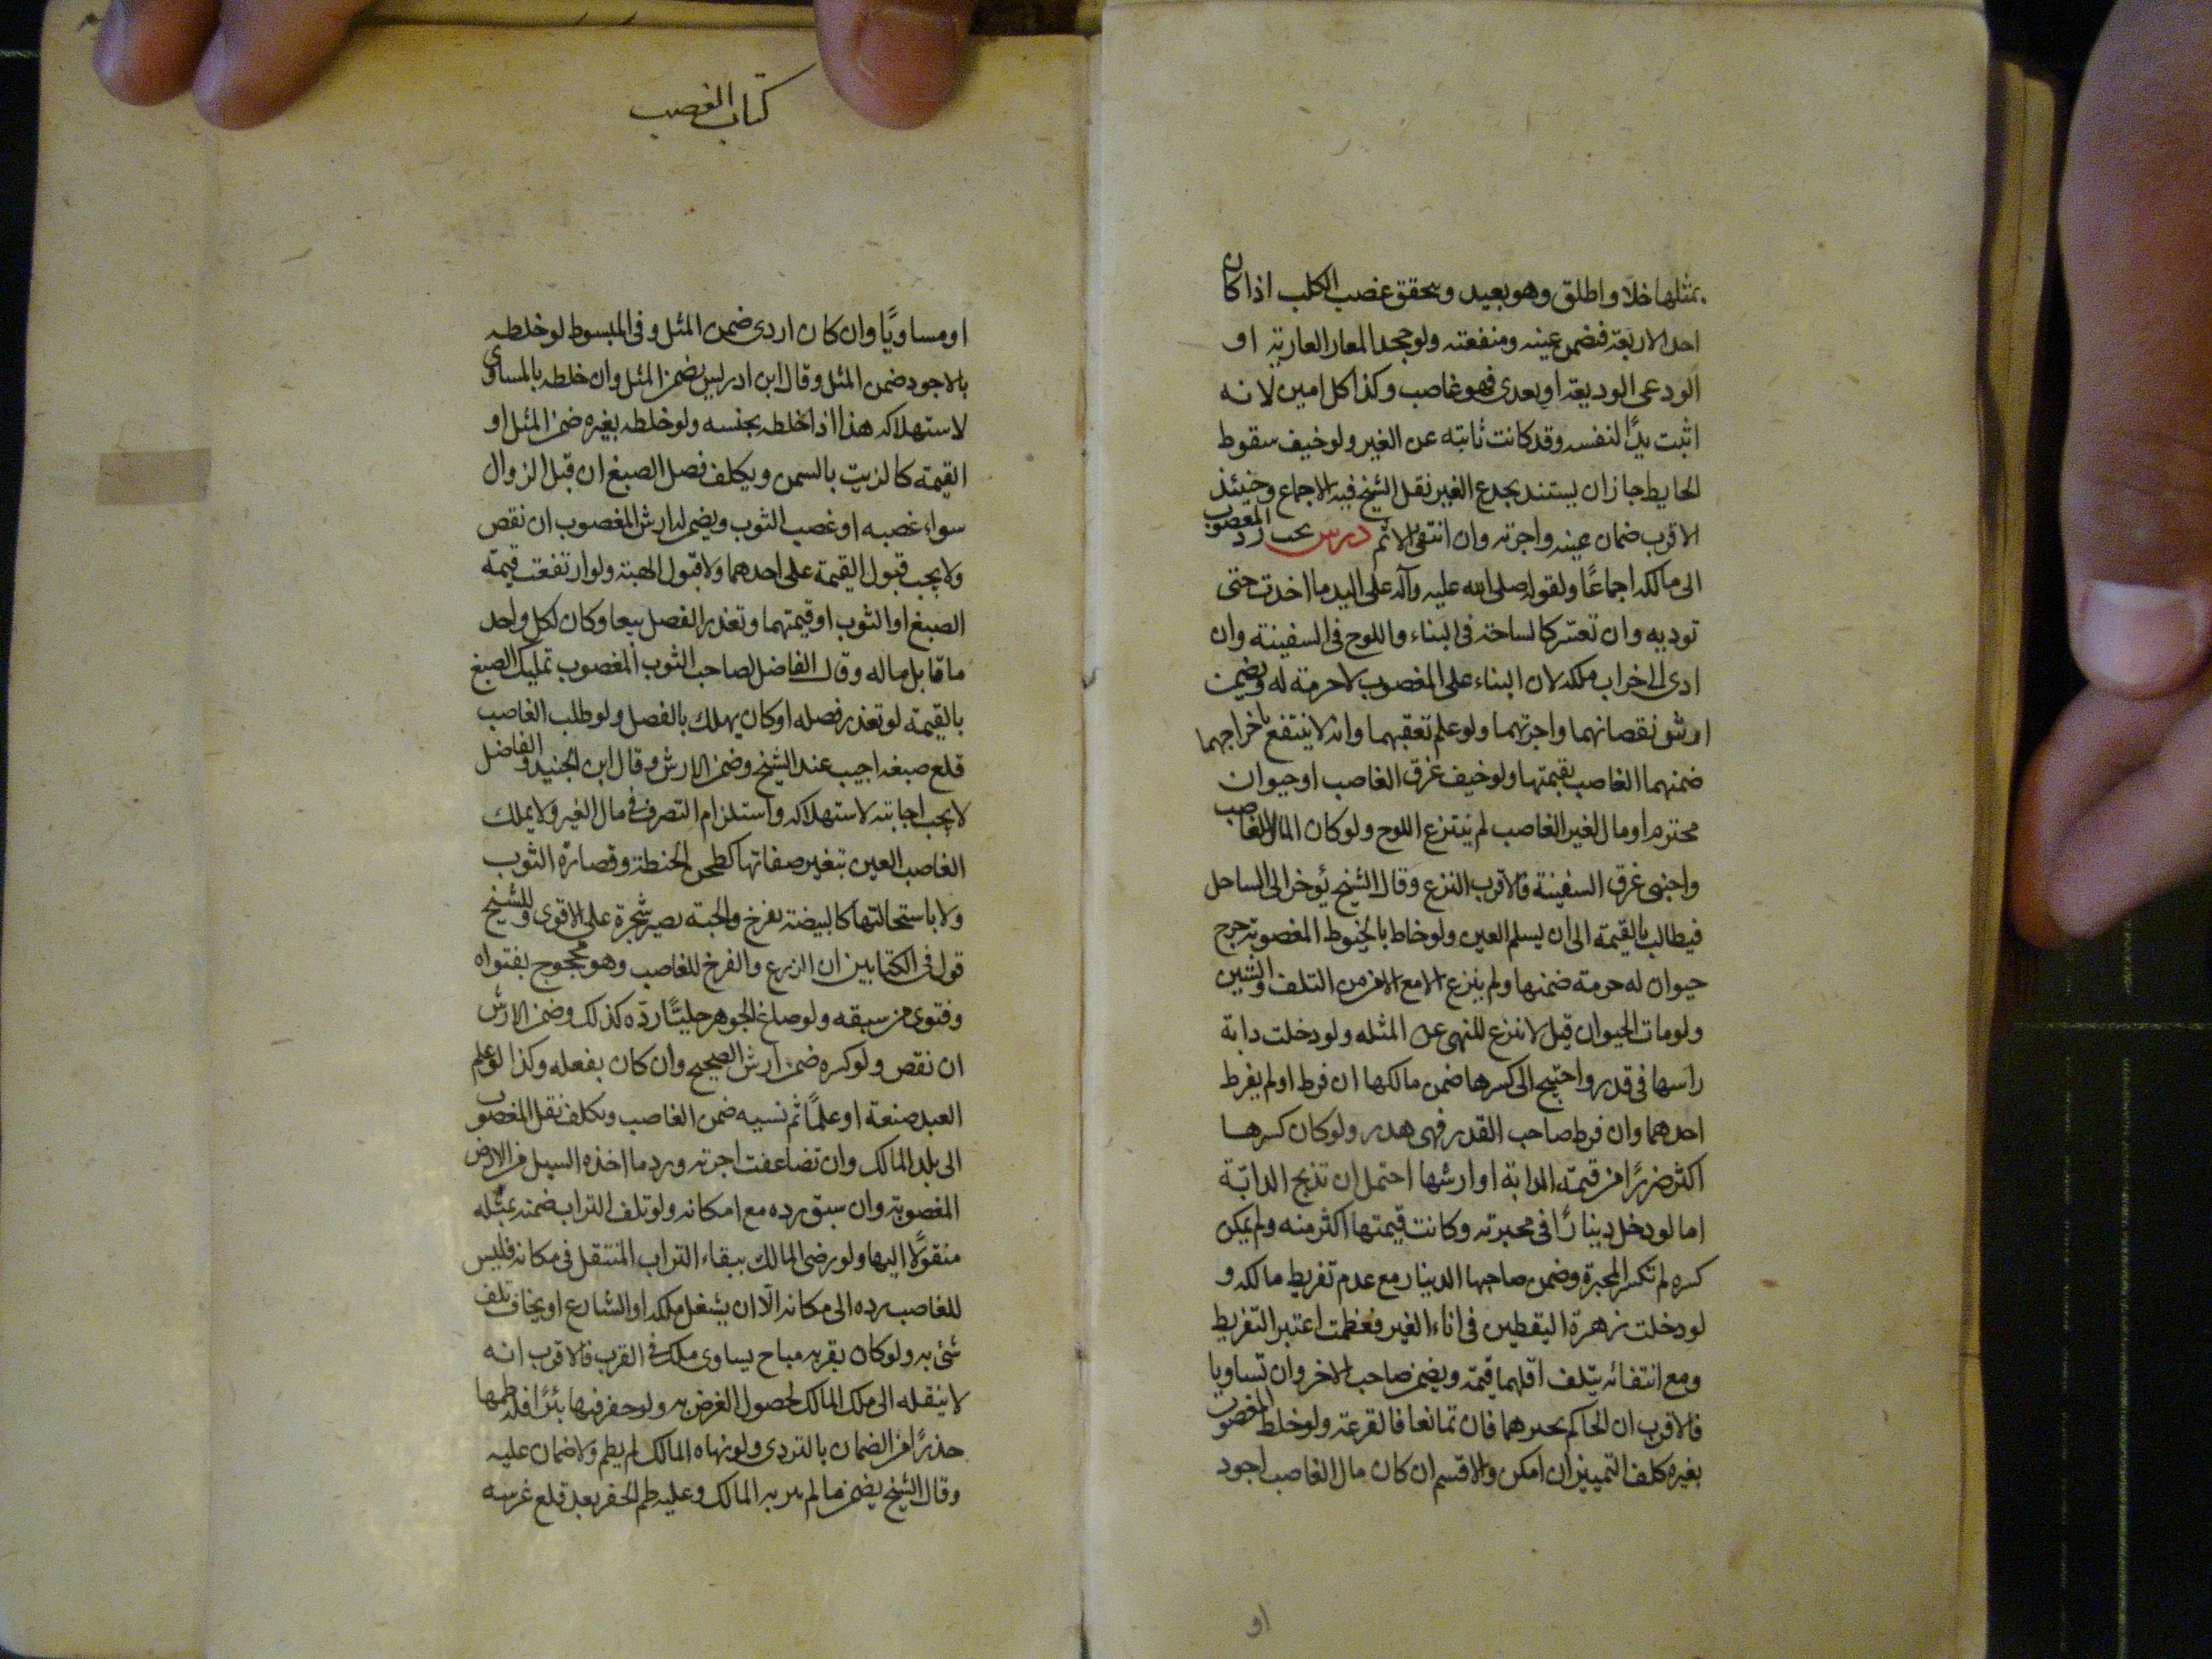 بمثلها خلا واطلق وهو بعيد ويتحقق غصب الكلب اذا كان
احد الاربعة فيضمن عينه ومنفعته ولو جحد المعار العارية او
الودعى الوديعة او تعدى فهو غاصب وكذا كل امين لانه
اثبت يدًا لنفسه وقد كانت ثابته عن الغير ولو خيف سقوط
الحايط جاز ان يستند بجدع الغير نقل الشيخ فيه الاجماع وحينئذ
الاقرب ضمان عينه واجرته وان انتفى الاثم درس يجب رد المغصوب
الى مالكه اجماعًا ولقوله صلى الله عليه وآله على اليد ما اخدت حتى
توديه وان تعسّر كالساحة فى البناء واللوح فى السفينة وان
ادى الى خراب ملكه لان البناء على المغصوب لا حرمة له ويضمن
ارش نقصانهما واجرتهما ولو علم تعقبهما وانه لا ينتفع باخراجهما
ضمنهما الغاصب بقيمتها ولو خيف غرق الغاصب او حيوان
محترم او مال لغير الغاصب لم ينتزع اللوح ولو كان المال للغاصب
واجنبى غرق السفينة فالاقرب النزع وقال الشيخ يؤخر الى الساحل
فيطالب بالقيمة الى ان يسلم العين ولو خاط بالخيوط المغصوبة جرح
حيوان له حرمة ضمنها ولم ينزع الا مع الامن من التلف والشين
ولو مات الحيوان قيل لا ننزع للنهى عن المثله ولو دخلت دابة
راسها فى قدر واحتيج الى كسرها ضمن مالكها ان فرط او لم يفرط
احدهما وان فرط صاحب القدر فهى هدر ولو كان كسرها
اكثر ضررًا من قيمة الدابة او ارشها احتمل ان تذبح الدابّة
اما لو دخل دينارًا فى محبرته وكانت قيمتها اكثر منه ولم يمكن
كسره لم تكسر المحبرة وضمن صاحبها الدينار مع عدم تفريط مالكه و
لو دخلت زهرة اليقطين فى اناء الغير فعظمت اعتبر التفريط
ومع انتفائه يتلف اقلهما قيمة ويضمن صاحب الاخر وان تساويا
فالاقرب ان الحاكم يخيرهما فان تمانعا فالقرعة ولو خلط المغصوب
بغيره كلف التمييز ان امكن والا قسم ان كان مال الغاصب اجود
او
كتاب الغصب
او مساويًا وان كان اردى ضمن المثل وفى المبسوط لو خلطه
بالاجود ضمن المثل وقال ابن ادريس يضمن المثل وان خلطه بالمساوى
لاستهلاكه هذا اذا خلطه بجنسه ولو خلطه بغيره ضمن المثل او
القيمة كالزيت بالسمن ويكلف فصل الصبغ ان قبل الزوال
سواء غصبه او غصب الثوب ويضمن له ارش المغصوب ان نقص
ولا يجب قبول القيمة على احدهما ولا قبول الهبة ولو ارتفعت قيمة
الصبغ او الثوب او قيمتهما وتعذر الفصل بيعا وكان لكل واحد
ما قابل ماله وقال الفاضل لصاحب الثوب المغصوب تمليك الصبغ
بالقيمة لو تعذر فصله او كان يهلك بالفصل ولو طلب الغاصب
قلع صبغه اجيب عند الشيخ وضمن الارش وقال ابن الجنيد والفاضل
لا يجب اجابته لاستهلاكه واستلزام التصرف فى مال الغير ولا يملك
الغاصب العين بتغير صفاتها كطحن الحنطة وقصارة الثوب
ولا باستحالتها كالبيضة تفرخ والحبة تصير شجرة على الاقوى وللشيخ
قول فى الكتابين ان الزرع والفرخ للغاصب وهو محجوج بفتواه
وفتوى من سبقه ولو صاغ الجوهر حليًّا ردّه كذلك وضمن الارش
ان نقص ولو كسره ضمن ارش الصحيح وان كان بفعله وكذا لو علم
العبد صنعة او علمًا ثم نسيه ضمن الغاصب ويكلف نقل المغصوب
الى بلد المالك وان تضاعفت اجرته ورد ما اخذه السيل من الارض
المغصوبة وان سبق رده مع امكانه ولو تلف التراب ضمنه بمثله
منقولًا اليها ولو رضى المالك ببقاء التراب المنتقل فى مكانه فليس
للغاصب رده الى مكانه الّا ان يشغل ملكه او الشارع او يخاف تلف
شئ به ولو كان بقربه مباح يساوى ملكه فى القرب فالاقرب انه
لا ينقله الى ملك المالك لحصول الغرض به ولو حفر فيها بئرًا فله طمها
حذرًا من الضمان بالتردى ولو نهاه المالك لم يطم ولا ضمان عليه
وقال الشيخ يضمن ما لم يبرئه المالك وعليه طم الحفر بعد قلع غرسه